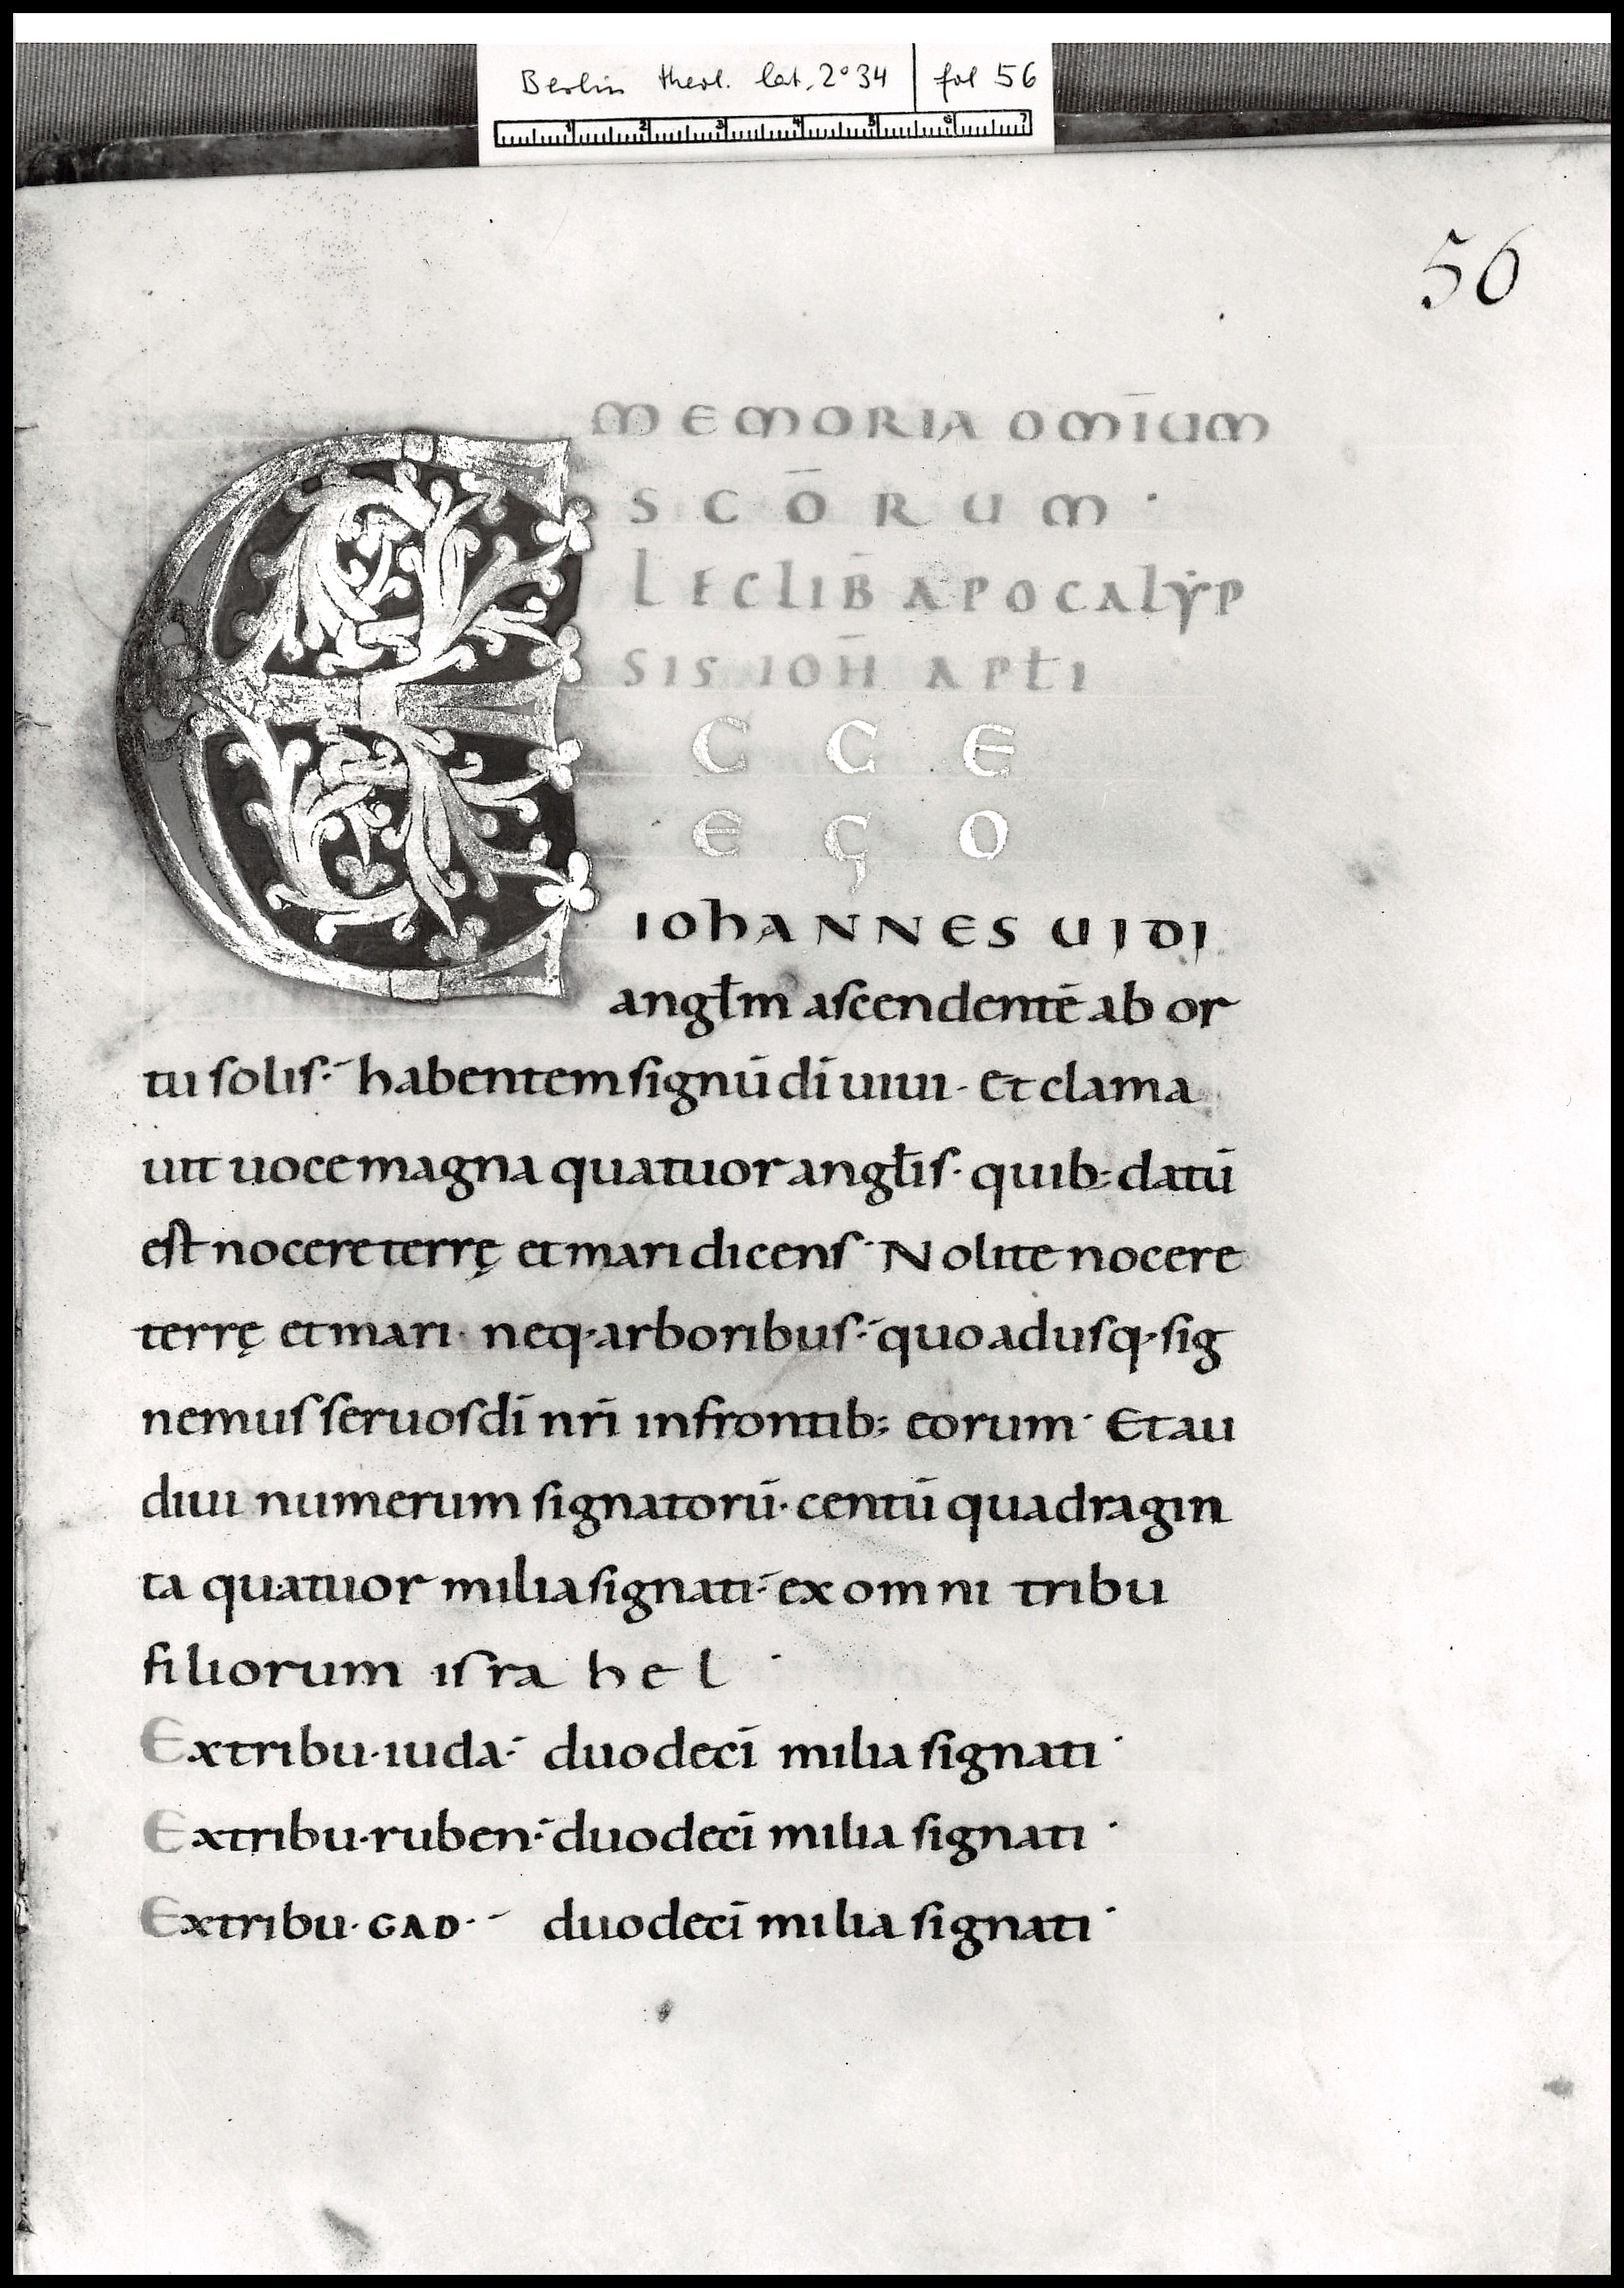 Berlin theol. lat. 2° 34 | fol 56
1 2 3 4 5 6 7
56
MEMORIA OMĪUM
SCŌRUM ·
LEC LIB̄ APOCALẎP
SIS IOH̄ APƚI
E C C E
E G O
IOhANNES UIDI
angƚm aſcendentē ab or
tu ſoliſ·́ habentem ſignū dī uiui · Et clama
uit uoce magna quatuor angƚiſ · quib; datū
eſt nocere terrę et mari dicenſ · Nolite nocere
terrę et mari · neq; arboribuſ·́ quo aduſq; ſig
nemuſ ſeruoſ dī nr̄i in frontib; eorum · Et au
diui numerum ſignatorū · centū quadragin
ta quatuor milia ſignati·́ ex omni tribu
filiorum iſrahel ·
Ex tribu · iuda·́ duodecī milia ſignati ·
Ex tribu · ruben·́ duodecī milia ſignati ·
Ex tribu · GAD ·́ duodecī milia ſignati ·